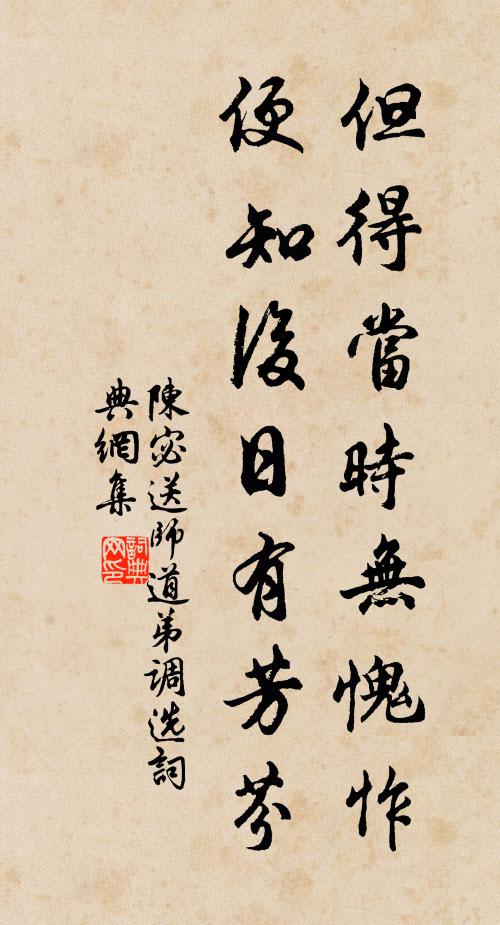 但得當時無愧怍
便知後日有芳芬
陳宓送師道弟調選詞
典網集
詞典
网印